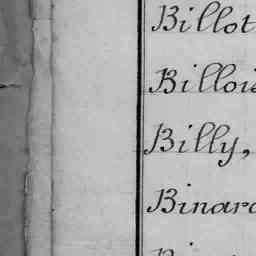 Billot
Billois
Billy,
Binard